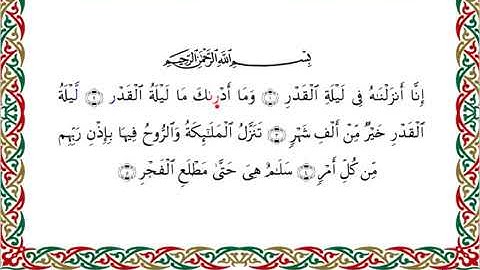 بِسْمِ اللَّهِ الرَّحْمَٰنِ الرَّحِيمِ
إِنَّا أَنزَلْنَٰهُ فِى لَيْلَةِ ٱلْقَدْرِ ۝١ وَمَآ أَدْرَىٰكَ مَا لَيْلَةُ ٱلْقَدْرِ ۝٢ لَيْلَةُ
ٱلْقَدْرِ خَيْرٌ مِّنْ أَلْفِ شَهْرٍ ۝٣ تَنَزَّلُ ٱلْمَلَٰٓئِكَةُ وَٱلرُّوحُ فِيهَا بِإِذْنِ رَبِّهِم
مِّن كُلِّ أَمْرٍ ۝٤ سَلَٰمٌ هِىَ حَتَّىٰ مَطْلَعِ ٱلْفَجْرِ ۝٥